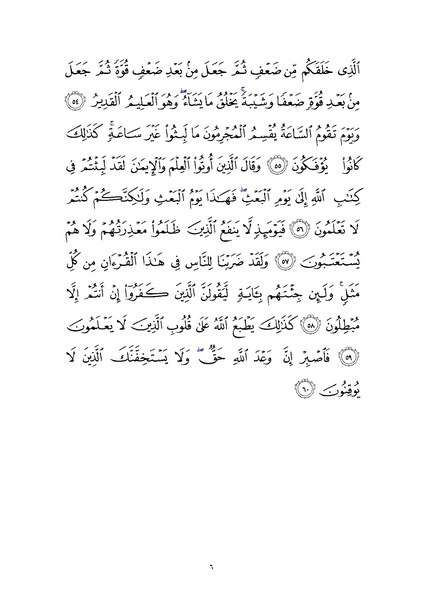 ٱلَّذِى خَلَقَكُم مِّن ضَعْفٍ ثُمَّ جَعَلَ مِنۢ بَعْدِ ضَعْفٍ قُوَّةً ثُمَّ جَعَلَ
مِنۢ بَعْدِ قُوَّةٍ ضَعْفًا وَشَيْبَةً ۚ يَخْلُقُ مَا يَشَآءُ ۖ وَهُوَ ٱلْعَلِيمُ ٱلْقَدِيرُ ٥٤
وَيَوْمَ تَقُومُ ٱلسَّاعَةُ يُقْسِمُ ٱلْمُجْرِمُونَ مَا لَبِثُوا۟ غَيْرَ سَاعَةٍ ۚ كَذَٰلِكَ
كَانُوا۟ يُؤْفَكُونَ ٥٥ وَقَالَ ٱلَّذِينَ أُوتُوا۟ ٱلْعِلْمَ وَٱلْإِيمَٰنَ لَقَدْ لَبِثْتُمْ فِى
كِتَٰبِ ٱللَّهِ إِلَىٰ يَوْمِ ٱلْبَعْثِ ۖ فَهَٰذَا يَوْمُ ٱلْبَعْثِ وَلَٰكِنَّكُمْ كُنتُمْ
لَا تَعْلَمُونَ ٥٦ فَيَوْمَئِذٍ لَّا يَنفَعُ ٱلَّذِينَ ظَلَمُوا۟ مَعْذِرَتُهُمْ وَلَا هُمْ
يُسْتَعْتَبُونَ ٥٧ وَلَقَدْ ضَرَبْنَا لِلنَّاسِ فِى هَٰذَا ٱلْقُرْءَانِ مِن كُلِّ
مَثَلٍ ۚ وَلَئِن جِئْتَهُم بِـَٔايَةٍ لَّيَقُولَنَّ ٱلَّذِينَ كَفَرُوٓا۟ إِنْ أَنتُمْ إِلَّا
مُبْطِلُونَ ٥٨ كَذَٰلِكَ يَطْبَعُ ٱللَّهُ عَلَىٰ قُلُوبِ ٱلَّذِينَ لَا يَعْلَمُونَ
٥٩ فَٱصْبِرْ إِنَّ وَعْدَ ٱللَّهِ حَقٌّ ۖ وَلَا يَسْتَخِفَّنَّكَ ٱلَّذِينَ لَا
يُوقِنُونَ ٦٠
٦